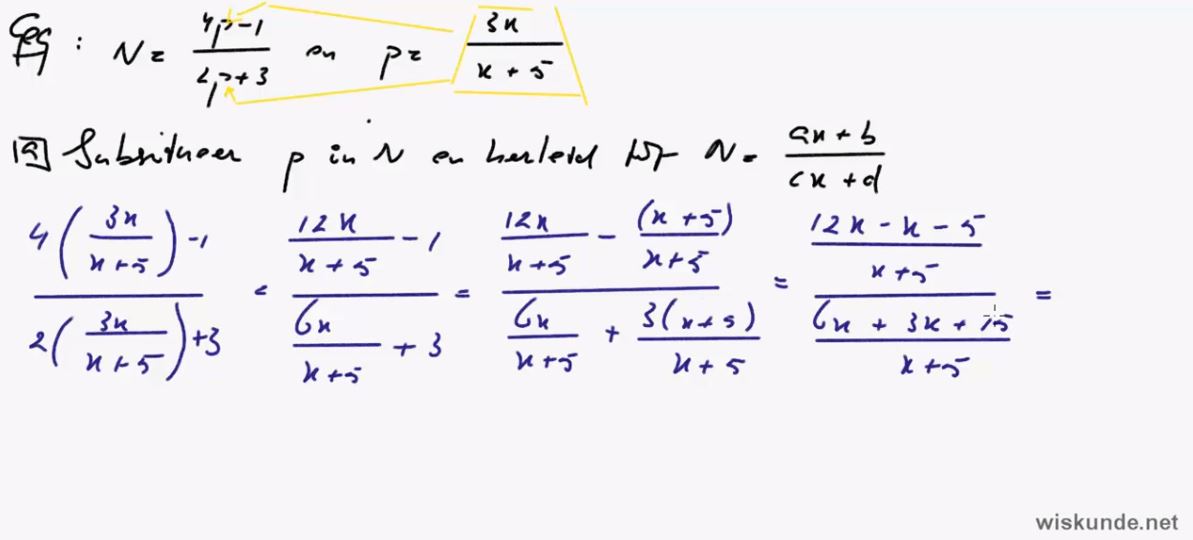 Geg : N = (4p-1)/(2p+3) en p = 3x/(x+5)
a) Substitueer p in N en herleid tot N = (ax+b)/(cx+d)
(4(3x/(x+5))-1)/(2(3x/(x+5))+3) = (12x/(x+5) - 1)/(6x/(x+5) + 3) = (12x/(x+5) - (x+5)/(x+5))/(6x/(x+5) + 3(x+5)/(x+5)) = ((12x-x-5)/(x+5))/((6x+3x+15)/(x+5)) =
wiskunde.net